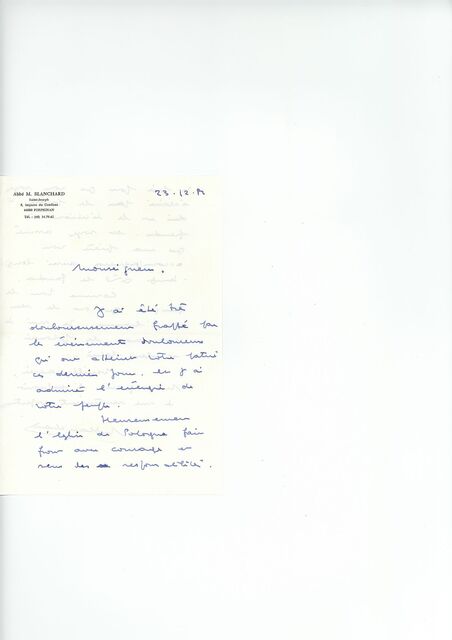 Abbé M. BLANCHARD
Saint-Joseph
66000 PERPIGNAN
23.12.
Monseigneur,
J'ai été très
douloureusement frappé par
les événements douloureux
qui ont atteint votre patrie
ces derniers jours. et j'ai
admiré l'énergie de
votre peuple.
Heureusement
l'Eglise de Pologne fait
front avec courage et
sens des responsabilités.